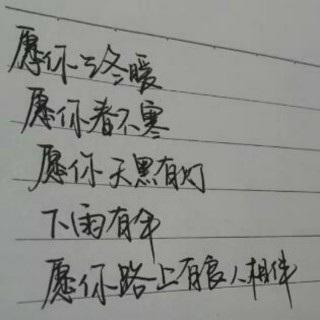 愿你云冬暖
愿你春不寒
愿你天黑有灯
下雨有伞
愿你路上有良人相伴